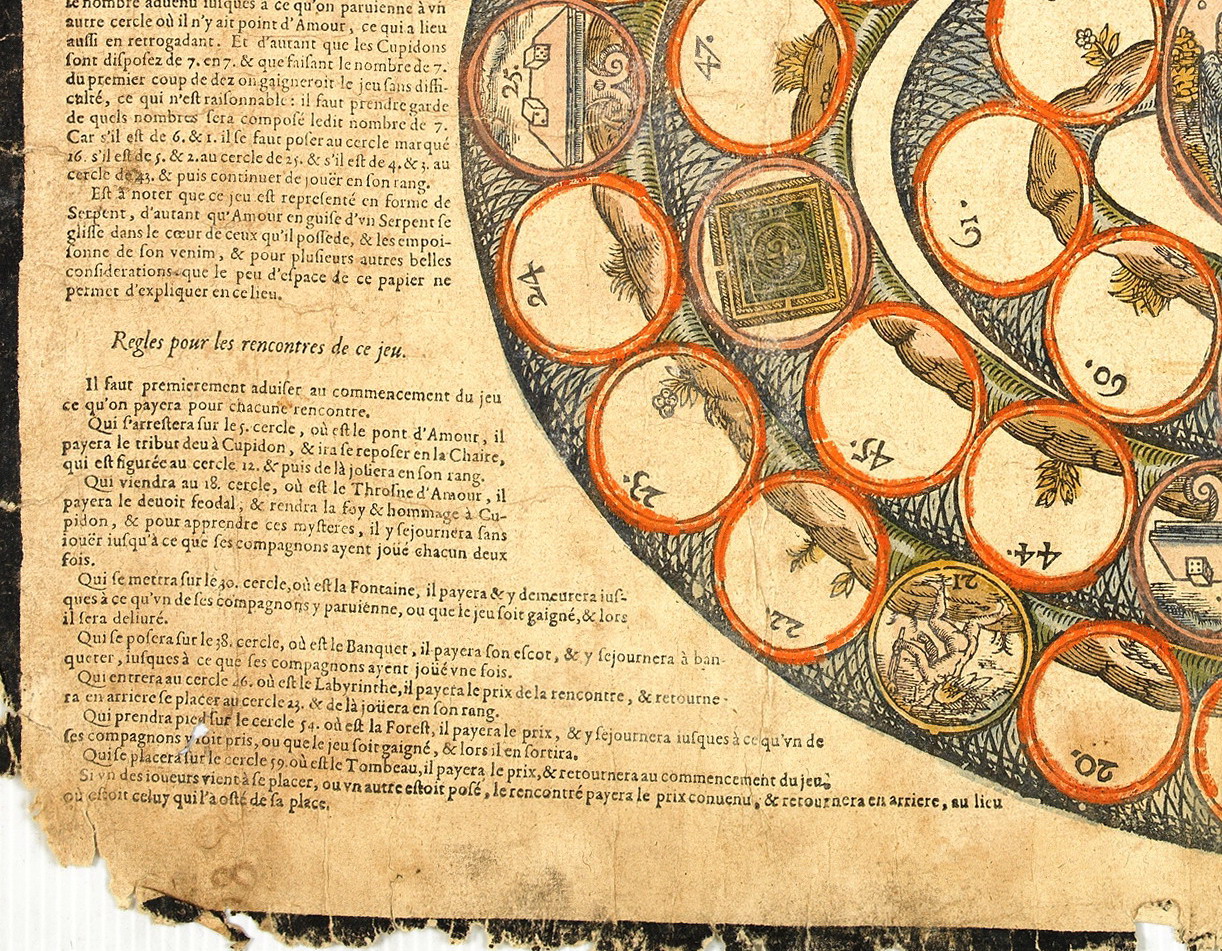 le nombre advenu iusques à ce qu'on paruienne à vn
autre cercle où il n'y ait point d'Amour, ce qui a lieu
aussi en retrogadant. Et d'autant que les Cupidons
sont disposez de 7. en 7. & que faisant le nombre de 7.
du premier coup de dez on gaigneroit le jeu sans diffi-
culté, ce qui n'est raisonnable: il faut prendre garde
de quels nombres sera composé ledit nombre de 7.
Car s'il est de 6. & 1. il se faut poser au cercle marqué
16. s'il est de 5. & 2. au cercle de 25. & s'il est de 4. & 3. au
cercle de 43. & puis continuer de jouër en son rang.
Est à noter que ce jeu est representé en forme de
Serpent, d'autant qu'Amour en guise d'vn Serpent se
glisse dans le cœur de ceux qu'il possede, & les empoi-
sonne de son venim, & pour plusieurs autres belles
considerations que le peu d'espace de ce papier ne
permet d'expliquer en ce lieu.
Regles pour les rencontres de ce jeu.
Il faut premierement aduiser au commencement du jeu
ce qu'on payera pour chacune rencontre.
Qui s'arrestera sur le 5. cercle, où est le pont d'Amour, il
payera le tribut deu à Cupidon, & ira se reposer en la Chaire,
qui est figurée au cercle 12. & puis de là joüera en son rang.
Qui viendra au 18. cercle, où est le Throsne d'Amour, il
payera le deuoir feodal, & rendra la foy & hommage à Cu-
pidon, & pour apprendre ces mysteres, il y sejournera sans
iouër iusqu'à ce que ses compagnons ayent joué chacun deux
fois.
Qui se mettra sur le 30. cercle, où est la Fontaine, il payera & y demeurera ius-
ques à ce qu'vn de ses compagnons y paruienne, ou que le jeu soit gaigné, & lors
il sera deliuré.
Qui se posera sur le 38. cercle, où est le Banquet, il payera son escot, & y sejournera à ban-
queter, iusques à ce que ses compagnons ayent joüé vne fois.
Qui entrera au cercle 46. où est le Labyrinthe, il payera le prix de la rencontre, & retourne-
ra en arriere se placer au cercle 23. & de là joüera en son rang.
Qui prendra pied sur le cercle 54. où est la Forest, il payera le prix, & y sejournera iusques à ce qu'vn de
ses compagnons y soit pris, ou que le jeu soit gaigné, & lors il en sortira.
Qui se placera sur le cercle 59. où est le Tombeau, il payera le prix, & retournera au commencement du jeu.
Si vn des ioueurs vient à se placer, ou vn autre estoit posé, le rencontré payera le prix conuenu, & retournera en arriere, au lieu
où estoit celuy qui l'a osté de sa place.
25.
47.
24
61.
60.
45.
23.
44.
22.
21
20.